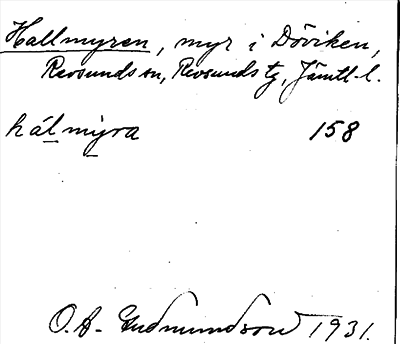 Hallmyren, myr i Döviken,
Revsunds sn, Revsunds tg, Jämtl. l.
hálmỳra 158
O. A. Gudmundson 1931.